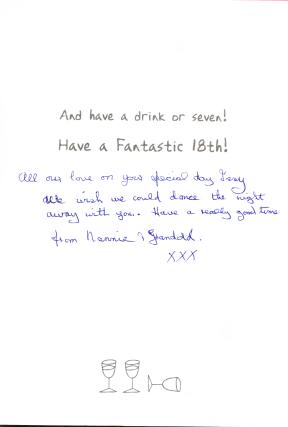 And have a drink or seven!
Have a Fantastic 18th!
All our love on your special day
We wish we could dance the night
away with you.. Have a really good time
from Nannie & Grandad.
XXX